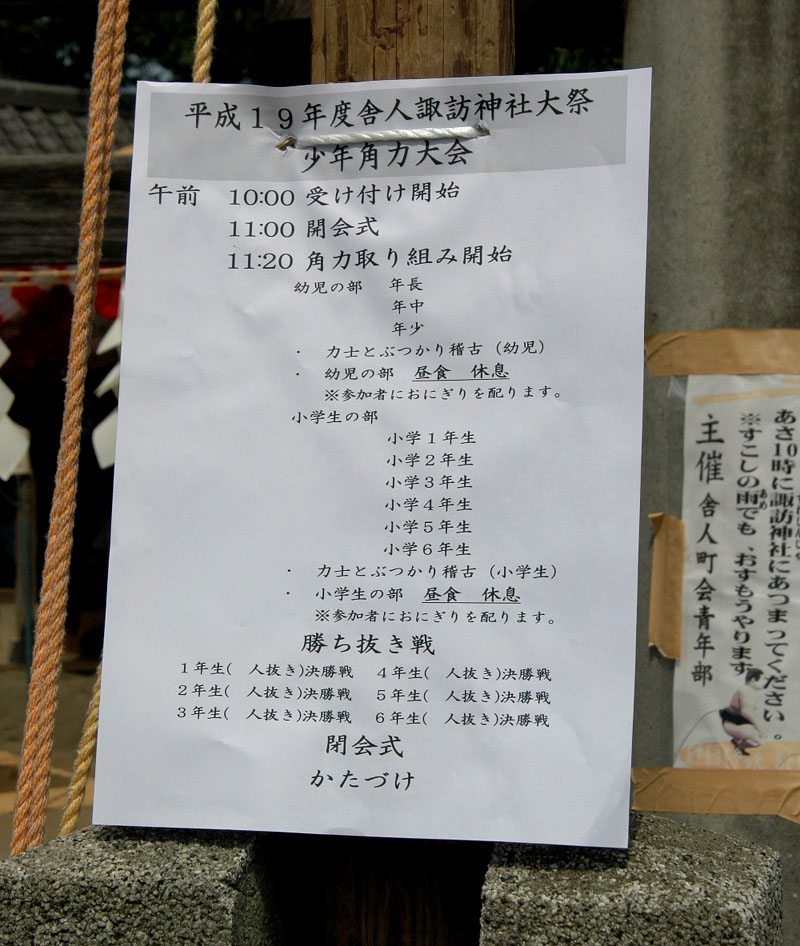 平成１９年度舎人諏訪神社大祭
少年角力大会
午前　10:00 受け付け開始
11:00 開会式
11:20 角力取り組み開始
幼児の部　年長
年中
年少
・　力士とぶつかり稽古（幼児）
・　幼児の部　昼食　休息
※参加者におにぎりを配ります。
小学生の部
小学１年生
小学２年生
小学３年生
小学４年生
小学５年生
小学６年生
・　力士とぶつかり稽古（小学生）
・　小学生の部　昼食　休息
※参加者におにぎりを配ります。
勝ち抜き戦
１年生(　人抜き)決勝戦　４年生(　人抜き)決勝戦
２年生(　人抜き)決勝戦　５年生(　人抜き)決勝戦
３年生(　人抜き)決勝戦　６年生(　人抜き)決勝戦
閉会式
かたづけ
あさ10時に諏訪神社にあつまってください。
※すこしの雨でも、おすもうやります
主催 舎人町会青年部